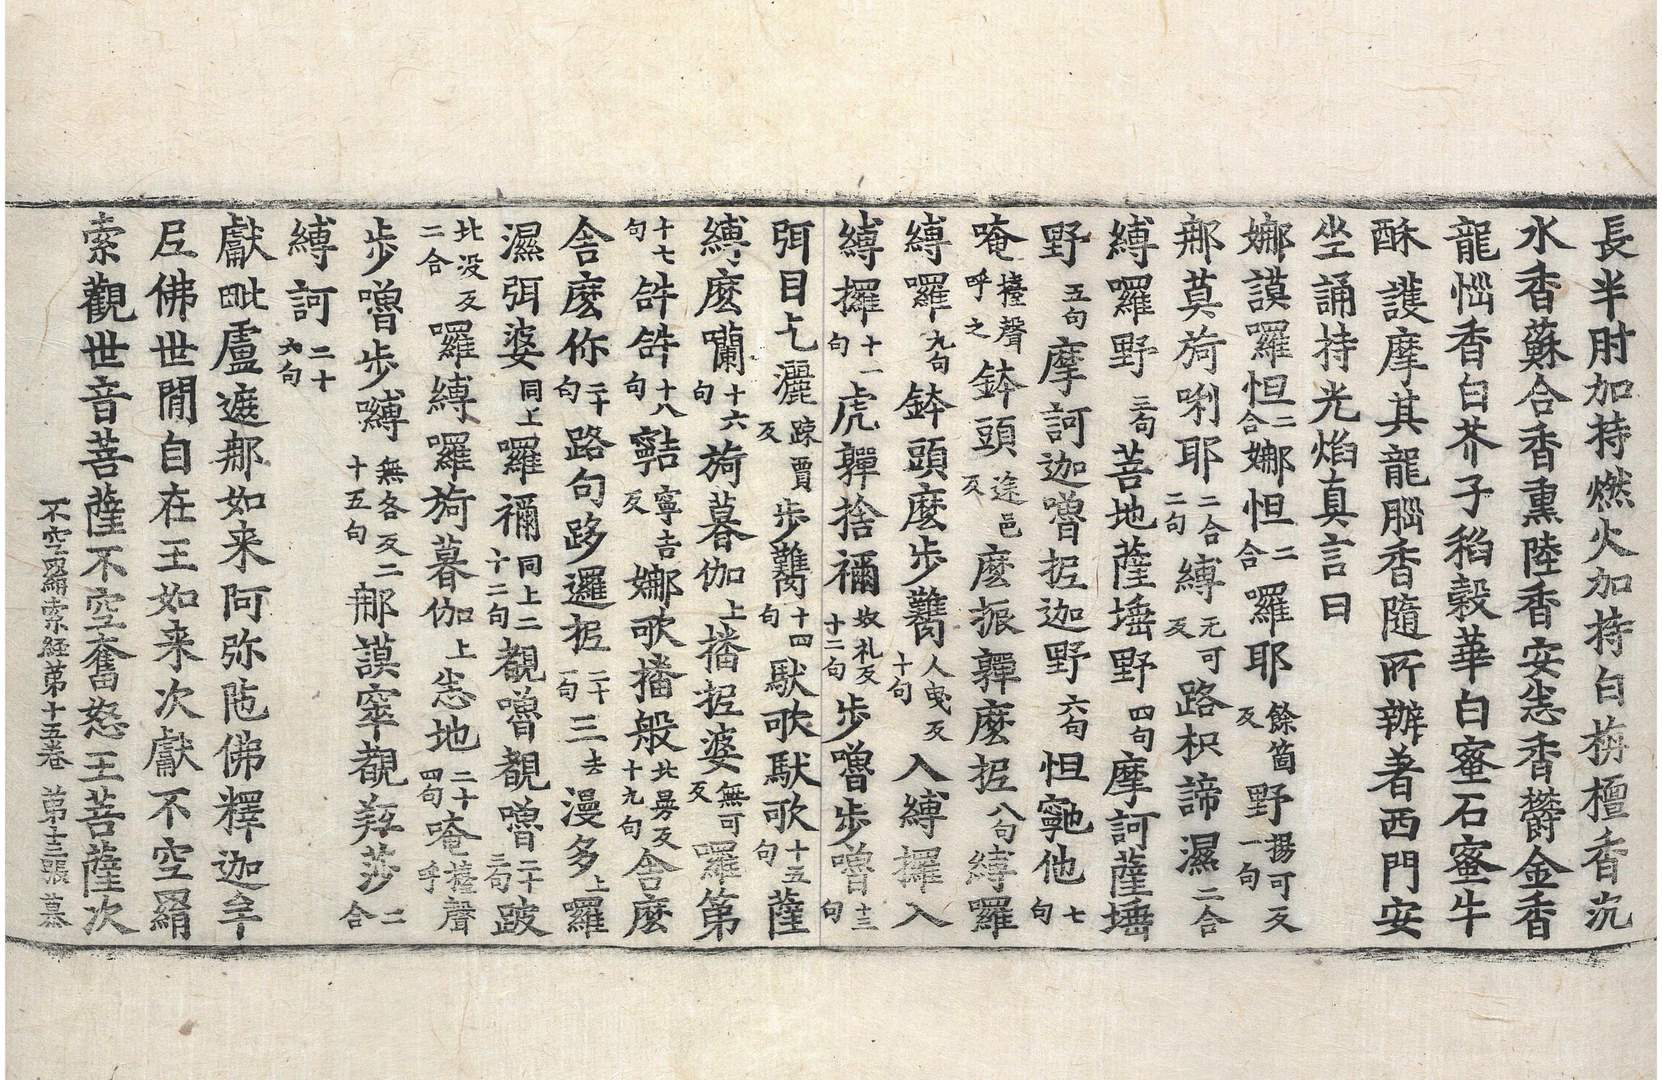 長半肘加持燃火加持白栴檀香沉
水香蘇合香熏陸香安悉香欝金香
龍𦛁香白芥子稻穀華白蜜石蜜牛
酥護摩其龍𦛁香隨所辦著西門安
坐誦持光焰真言曰
娜謨囉怛二合娜怛二合囉耶餘箇反野揚可反一句
那莫旖唎耶二合二句縛无可反路枳諦濕二合
縛囉野三句菩地薩埵野四句摩訶薩埵
野五句摩訶迦嚕抳迦野六句怛寧也他七句
唵擡聲呼之鉢頭途邑反麽振㘄麽抳八句縛囉
縛囉九句鉢頭麽步人曳反十句入縛攞入
縛攞十一句虎㘄捨禰奴礼反十二句步嚕步嚕十三句
弭目乞灑疎賈反步十四句馱歌馱歌十五句薩
縛麽囒十六句旖暮伽上播抳婆無可反囉第
十七句㖃㖃十八句寧吉反娜歌播般北㬒反十九句舍麽
舍麽你二十句路句路邏抳二十一句三去漫多上囉
濕弭婆同上囉禰同上二十二句覩嚕覩嚕二十三句跛
北没反二合囉縛囉旖暮伽上悉地二十四句唵擡聲呼
步嚕步嚩無各反二十五句那謨窣覩羝莎二合
縛訶二十六句
獻毗盧遮那如来阿弥陁佛釋迦牟
尼佛世閒自在王如来次獻不空羂
索觀世音菩薩不空奮怒王菩薩次
不空羂索経第十五卷 第十三張 慕